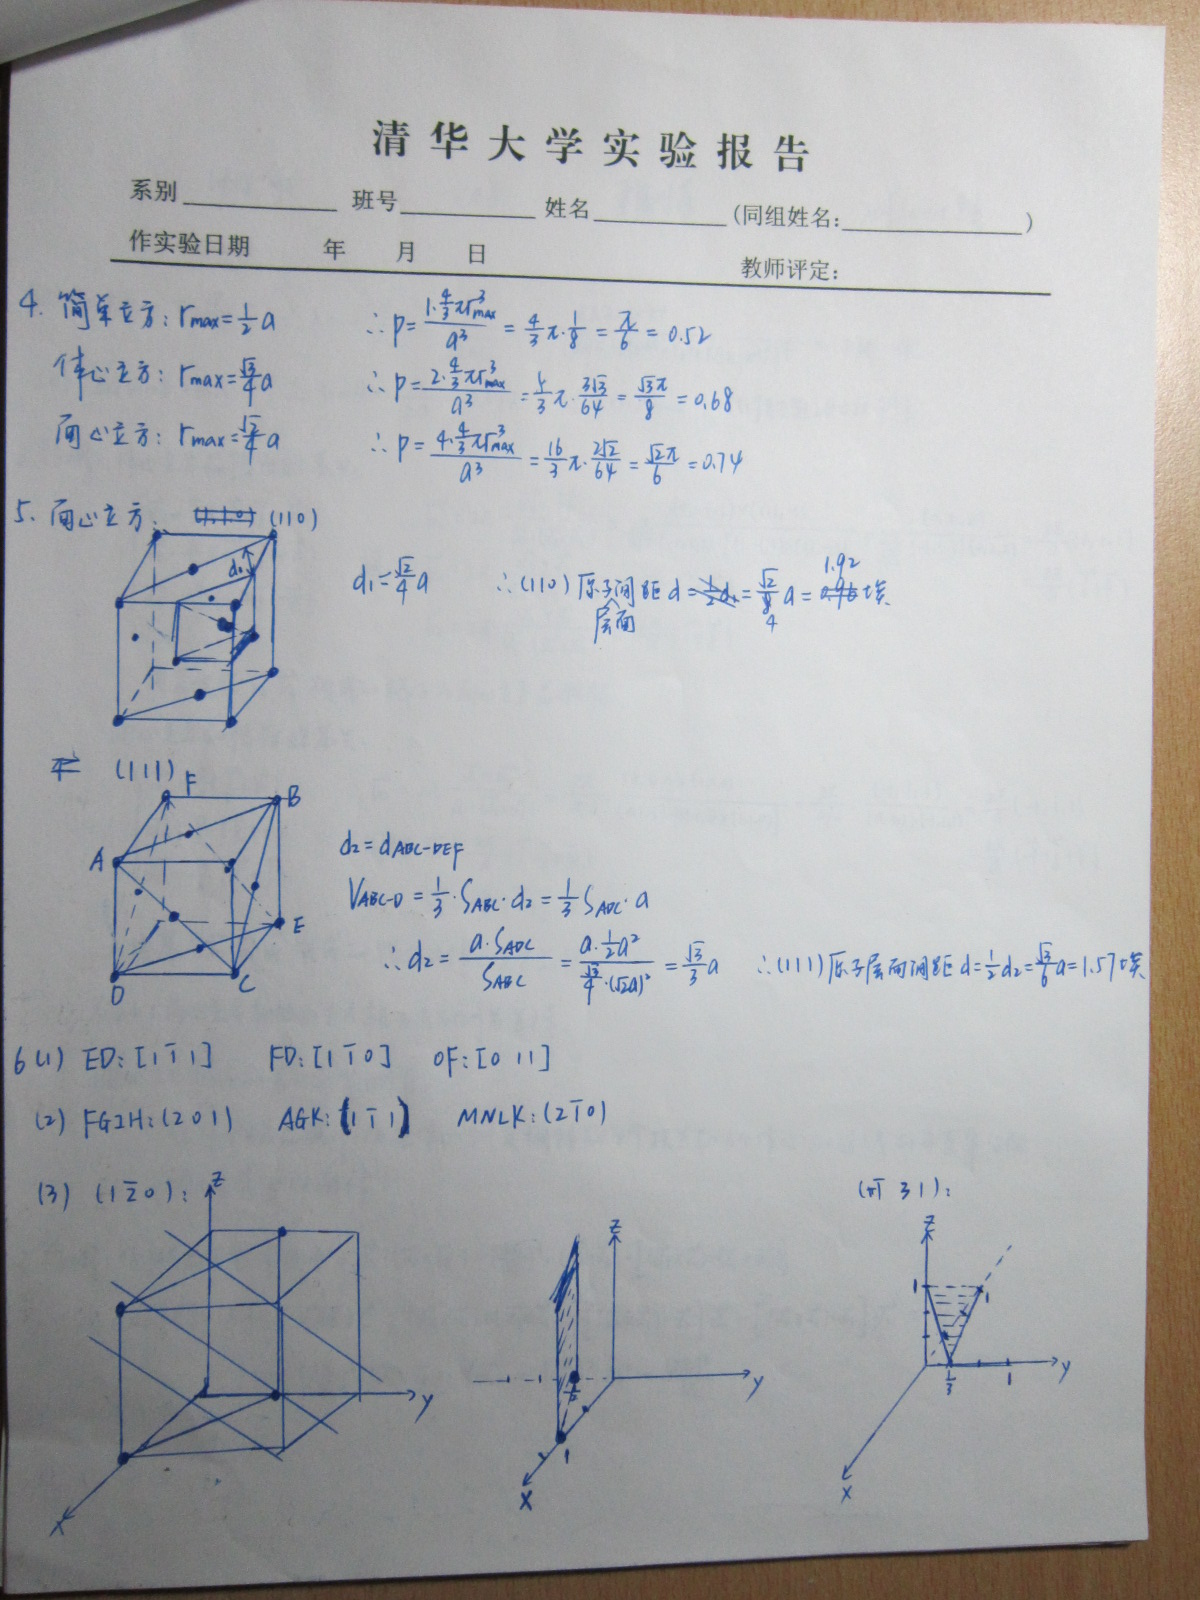 清华大学实验报告
系别 班号 姓名 (同组姓名: )
作实验日期 年 月 日 教师评定:
4. 简单立方: rmax=1/2 a ∴p=1·4/3 πr³max/a³ = 4/3 π·1/8 = π/6 = 0.52
体心立方: rmax=√3/4 a ∴p=2·4/3 πr³max/a³ = /3 π·3√3/64 = √3π/8 = 0.68
面心立方: rmax=√2/4 a ∴p=4·4/3 πr³max/a³ = 16/3 π·2√2/64 = √2π/6 = 0.74
5. 面心立方: (110)
d₁
d₁=√2/4 a ∴(110)原子层面间距 d= =√2/4 a=1.92埃
(111)
F B
A
E
D C
d₂=dABC-DEF
VABC-D=1/3·SABC·d₂=1/3 SADC·a
∴d₂= a·SADC/SABC = a·1/2a²/√3/4·(√2a)² = √3/3 a ∴(111)原子层面间距 d=1/2 d₂=√3/6 a=1.57埃
6 (1) ED: [1 1̄ 1] FD: [1 1̄ 0] OF: [0 1 1]
(2) FGIH: (2 0 1) AGK: (1 1̄ 1) MNLK: (2 1̄ 0)
(3) (1 2̄ 0): ( 3 1):
Z
Y
X
Z
Y
1
X
Z
1 1
1/3 1 Y
X